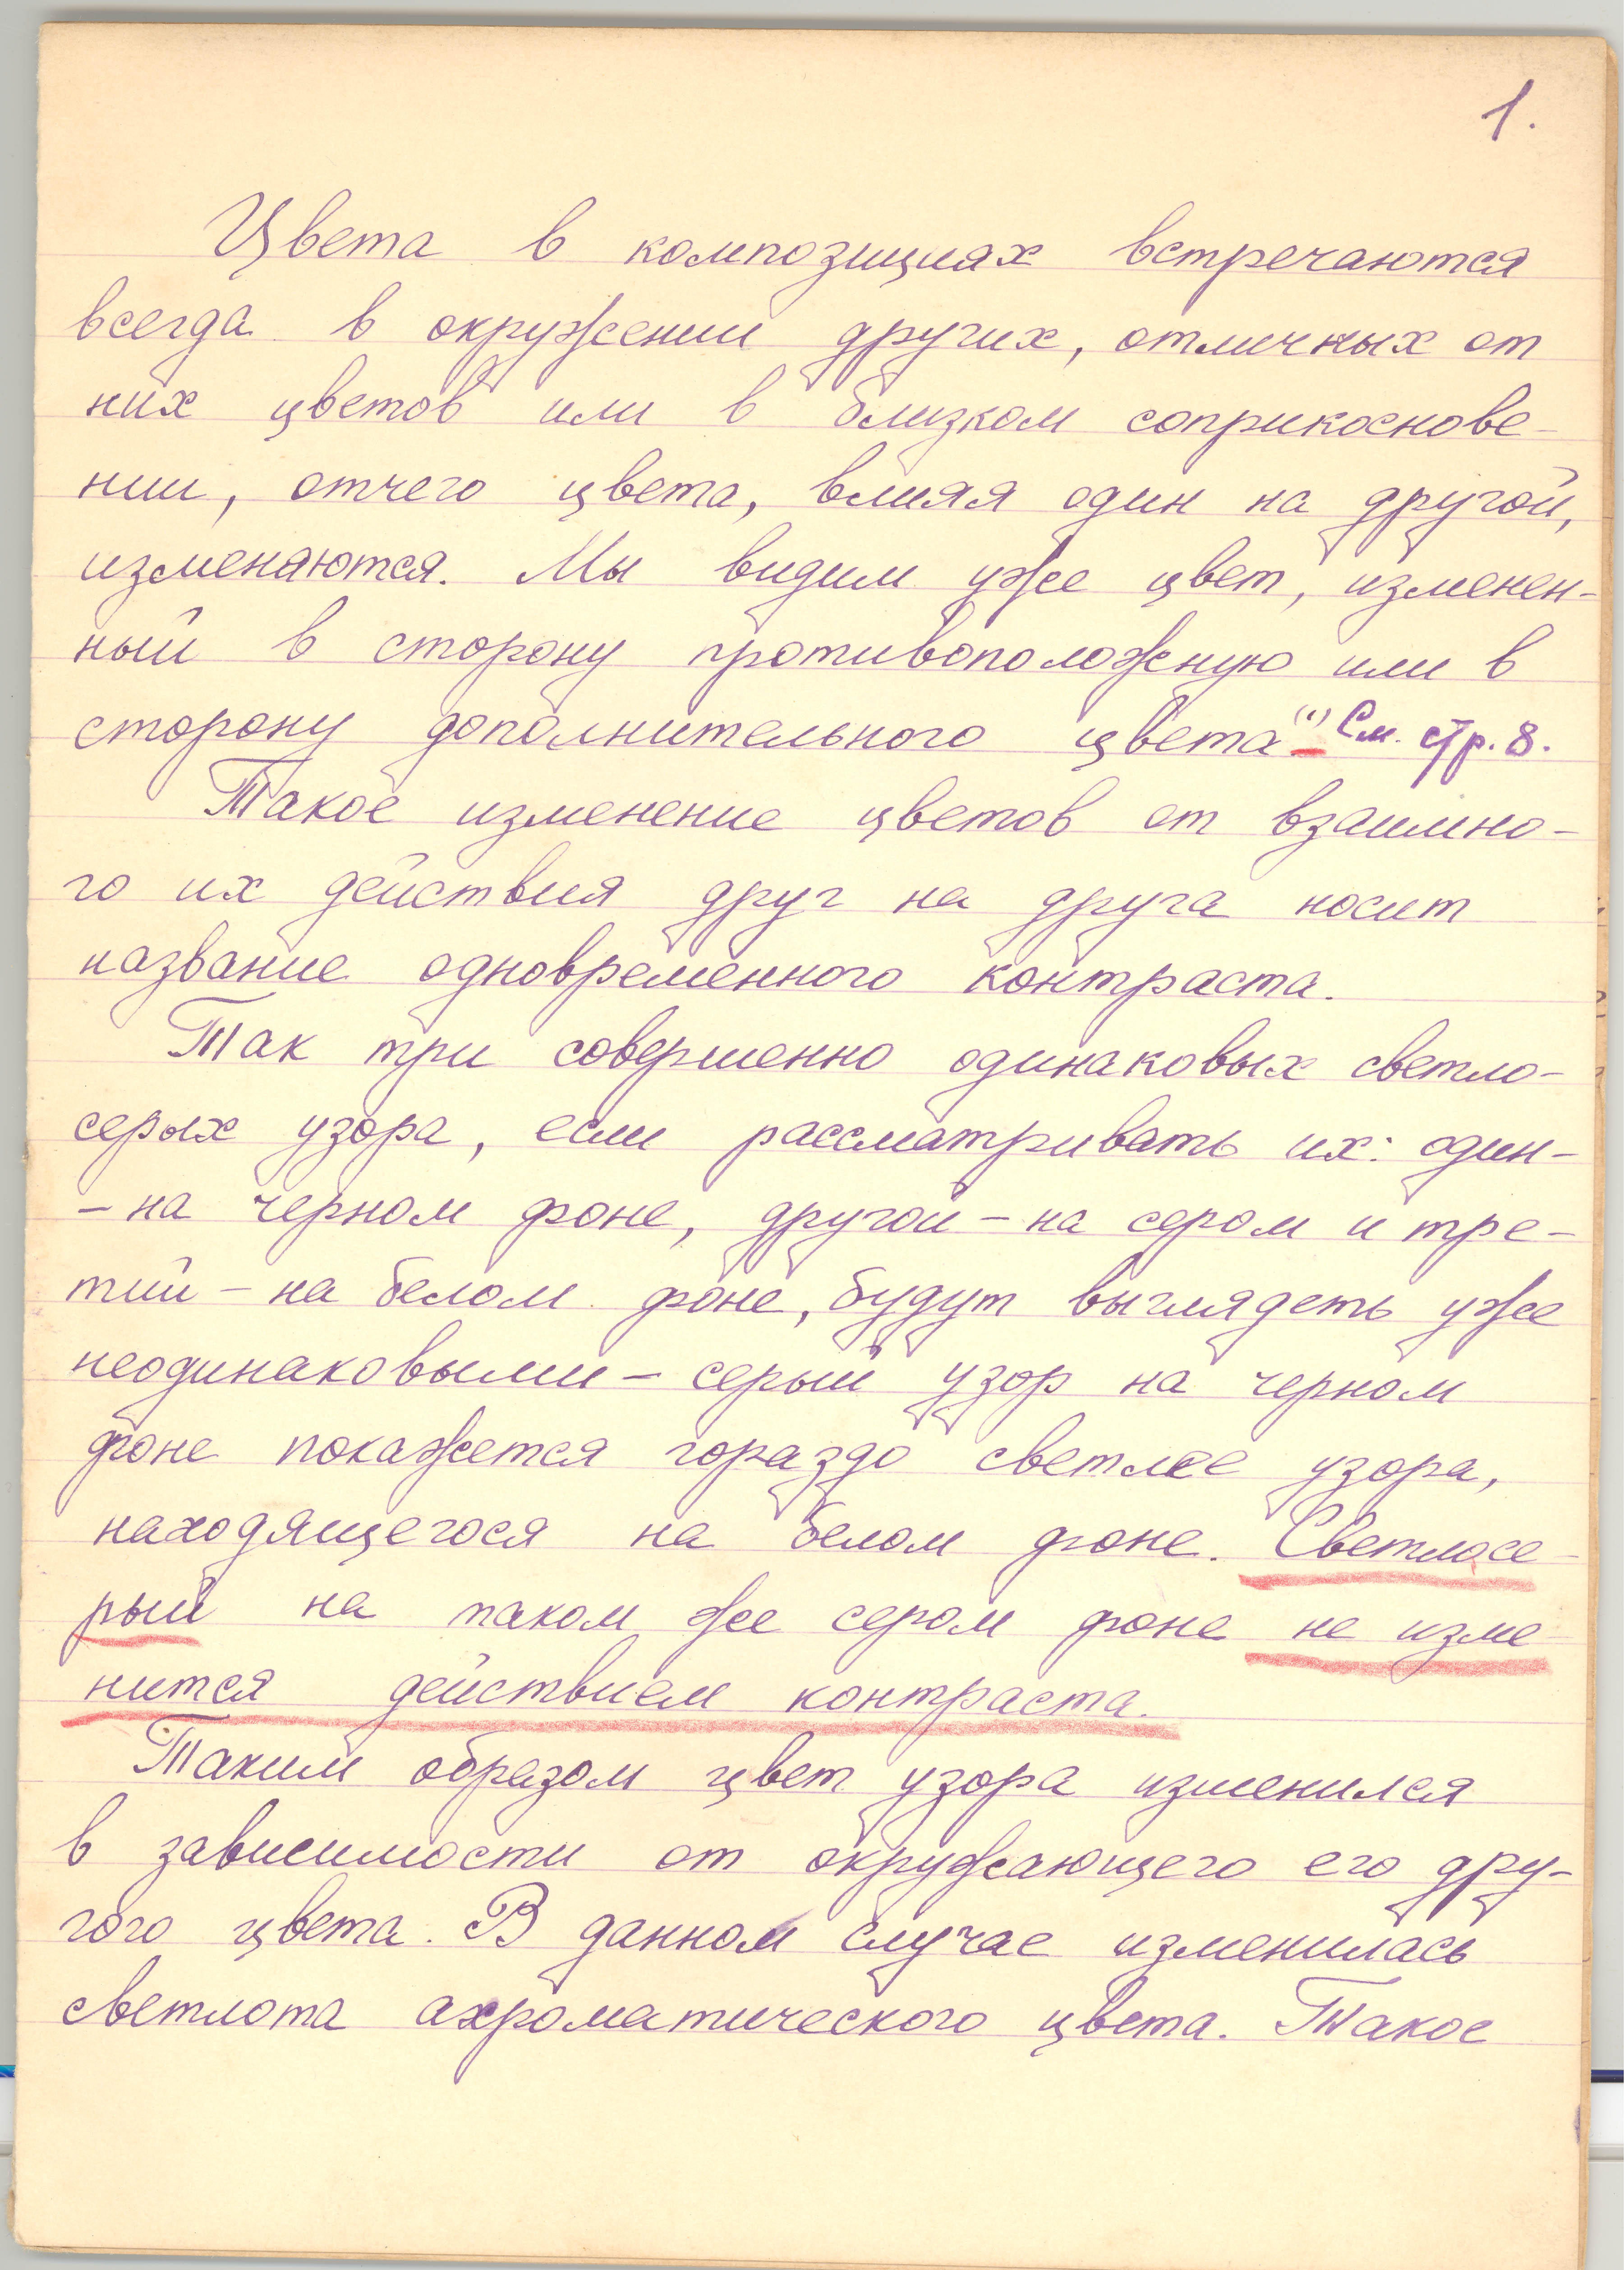 1.
Цвета в композициях встречаются
всегда в окружении других, отличных от
них цветов или в близком соприкоснове-
нии, отчего цвета, влияя один на другой,
изменяются. Мы видим уже цвет, изменен-
ный в сторону противоположную или в
сторону дополнительного цвета (1) См. стр. 8.
Такое изменение цветов от взаимно-
го их действия друг на друга носит
название одновременного контраста.
Так три совершенно одинаковых светло-
серых узора, если рассматривать их: один-
- на черном фоне, другой - на сером и тре-
тий - на белом фоне, будут выглядеть уже
неодинаковыми - серый узор на черном
фоне покажется гораздо светлее узора,
находящегося на белом фоне. Светлосе-
рый на таком же сером фоне не изме-
нится действием контраста.
Таким образом цвет узора изменился
в зависимости от окружающего его дру-
гого цвета. В данном случае изменилась
светлота ахроматического цвета. Такое